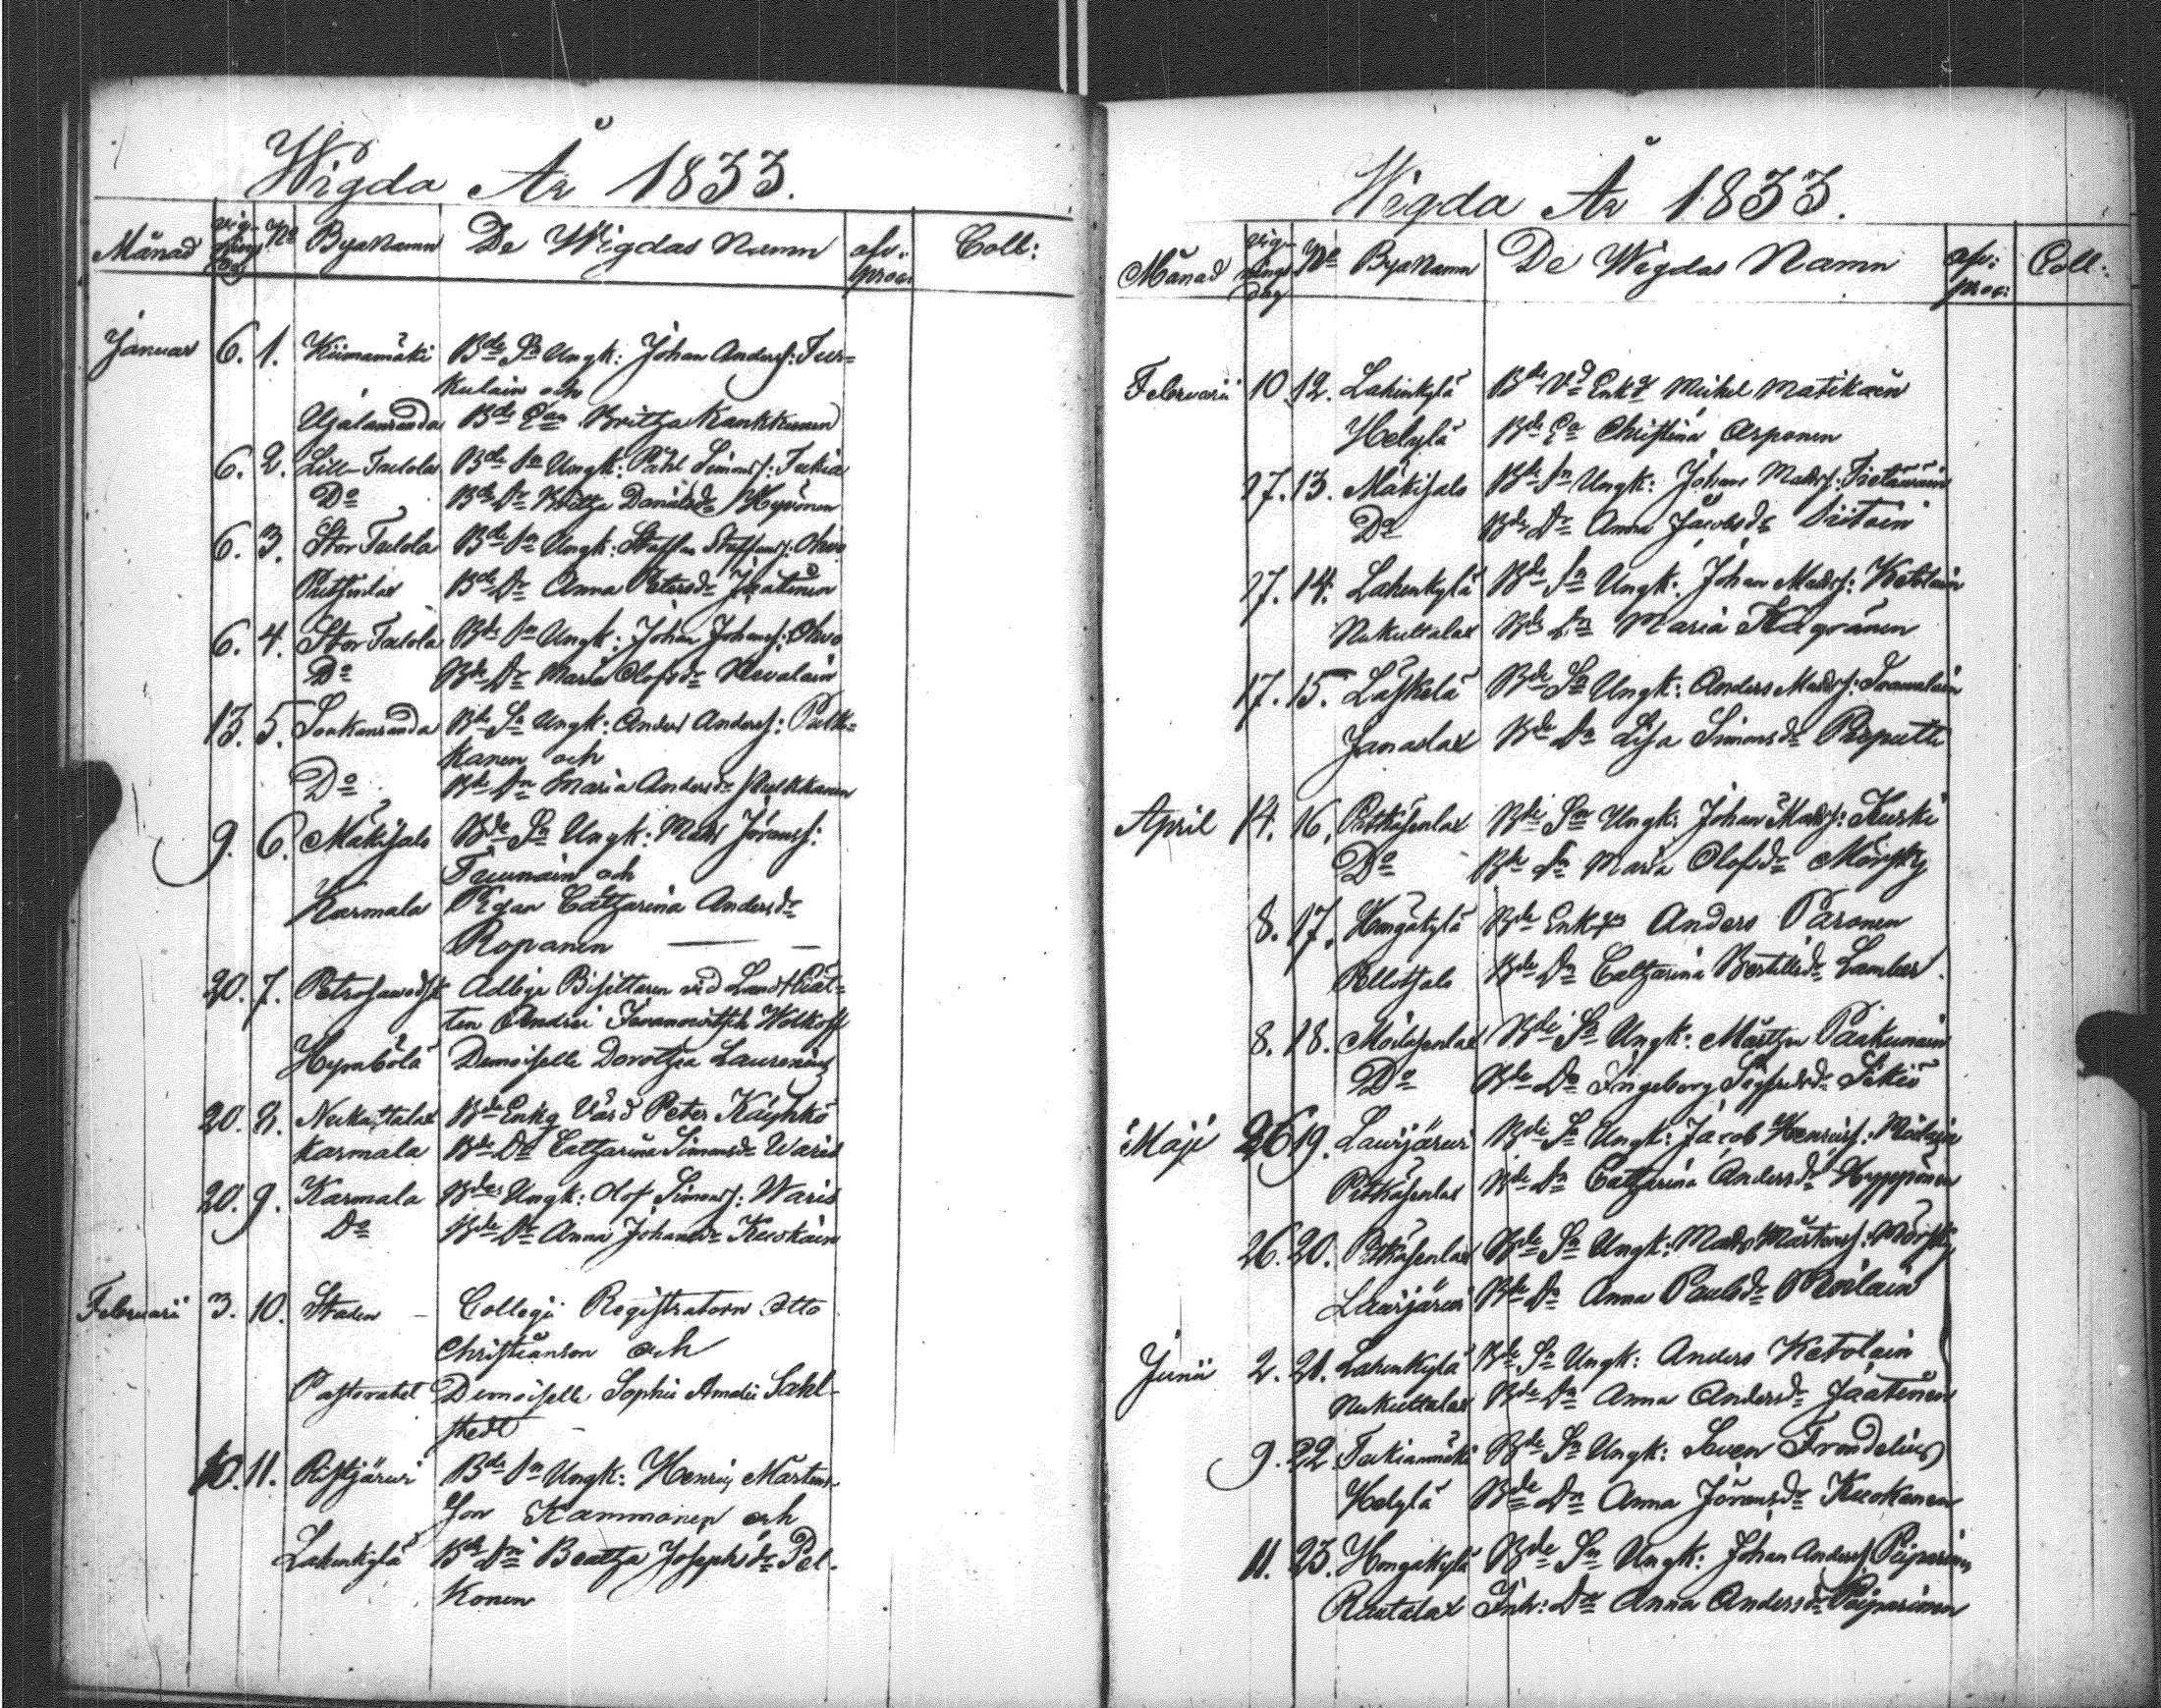 Wigda År 1833.
Månad Vig-nings dag No Byanamn De Wigdas Namn afv: proc: Coll:
Januar 6. 1. Kiimamäki Bde Sn Ungk: Johan Anderss: Tur=
kulain och
Ujalanranda Bde Don Britha Kankkunen
6. 2. Lill-Tulola Bde Sn Ungk: Påhl Simonss: Tukia
Do Bde Dr Britha Danielsdr Hyvönen
6. 3. Stor Tulola Bde Sn Ungk: Staffan Staffanss: Ohvo
Bde Dr Anna Petersdr Jäätinen
6. 4. Stor Tulola Bde Sn Ungk: Johan Johanss: Ohvo
Do Bde Dr Maria Olofsdr
13. 5. Sonkanranda Bde Sn Ungk: Anders Anderss: Pulk=
kanen och
Do Bde Dn Maria Andersdr Pulkkanen
9. 6. Mäkisalo Bde Sn Ungk: Mats Jöranss:
Teunain och
Karmala Pigan Catharina Andersdr
Ropanen
20. 7. Petrosawodsk Adlige Bisittaren vid Landträt=
ten Andrei Ivanowitsch Wolkoff
Hympölä Demoiselle Dorothea Laurenius
20. 8. Nukuttalax Bde Enkg Vård Peter Käyhkö
Karmala Bde Dr Catharina Simonsdr Waris
20. 9. Karmala Bdes Ungk: Olof Simonss: Waris
Do Bde Dr Anna Johansdr Kuokäin
Februarii 3. 10. Staden Collegii Registratorn Otto
Christianson och
Pastoratet Demoiselle Sophie Amalie Sahl-
stedt
10. 11. Ristjärwi Bde Sn Ungk: Henric Mårtens-
son Kammonen och
Lahenkylä Bde Dn Beatha Josephsdr Pel-
konen
Wigda År 1833.
Månad Vig-nings dag No Byanamn De Wigdas Namn afv: proc: Coll:
Februarii 10 12. Lahenkylä Bde Vd Enkg Michel Matikain
Helylä Bde Do Christina Asponen
17. 13. Mäkisalo Bde Sn Ungk: Johan Matss: Tietäväin
Do Bde Dr Anna Jacobsdr
17. 14. Lahenkylä Bde Sn Ungk: Johan Matss: Ketolain
Nukuttalax Bde Dn Maria
17. 15. Läskelä Bde Sn Ungk: Anders Matss:
Janaslax Bde Dn Lisa Simonsdr
April 14. 16. Pitkäsenlax Bde Sn Ungk: Johan Matss: Kurki
Do Bde Dn Maria Olofsdr Mörsky
8. 17. Hongakylä Bde Enkg Anders Paronen
Pellotsalo Bde Dn Catharina Bertilsdr Lambas
8. 18. Möiläsenlax Bde Sn Ungk: Mårthen Paakunain
Do Bde Do Ingeborg Sigfredsdr Sikiö
Maji 26 19. Lavijärwi Bde Sn Ungk: Jacob Henricss: Moilain
Pitkäsenlax Bde Dn Catharina Andersdr Hyppönen
26. 20. Pitkäsenlax Bde Sn Ungk: Mats Mårtenss: Mörsky
Lavijärwi Bde Dn Anna Paulsdr Moilain
Junii 2. 21. Lahenkylä Bde Sn Ungk: Anders Ketolain
Nukuttalax Bde Dn Anna Andersdr Jäätinen
9. 22. Tukianmäki Bde Sn Ungk: Sven Frondelius
Helylä Bde Dn Anna Jöransdr Kuokanen
11. 23. Hongakylä Bde Sn Ungk: Johan Anderss: Piiparinen
Rautalax Inh: Dn Anna Andersdr Piiparinen